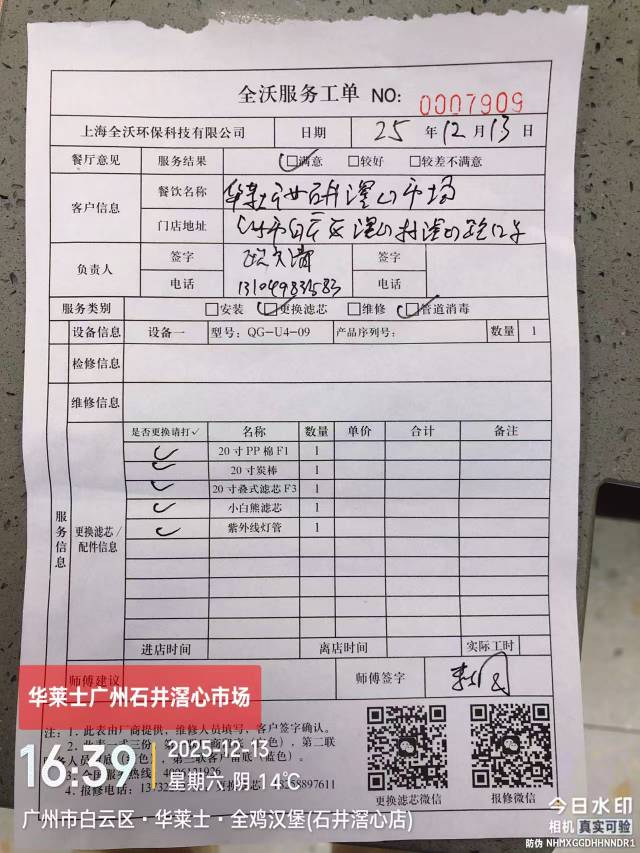 全沃服务工单 NO: 0007909
上海全沃环保科技有限公司 日期 25 年 12 月 13 日
餐厅意见 服务结果 满意 较好 较差不满意
客户信息 餐饮名称 华莱士 石井滘心市场
门店地址 市白云区滘心村
负责人 签字 签字
电话 电话
服务类别 安装 更换滤芯 维修 管道消毒
设备信息 设备一 型号: QG-U4-09 产品序列号: 数量 1
检修信息
维修信息
服务信息
更换滤芯/配件信息
是否更换请打✓ 名称 数量 单价 合计 备注
✓ 20寸PP棉F1 1
✓ 20寸炭棒 1
✓ 20寸叠式滤芯F3 1
✓ 小白熊滤芯 1
✓ 紫外线灯管 1
进店时间 离店时间 实际工时
师傅建议 师傅签字
华莱士广州石井滘心市场
注: 1. 此表由厂商提供, 维修人员填写, 客户签字确认。
16:39
2025-12-13
星期六 阴 14℃
更换滤芯微信 报修微信
广州市白云区·华莱士·全鸡汉堡(石井滘心店)
今日水印
相机 真实可验
防伪 NHMXGGDHHNNDR1